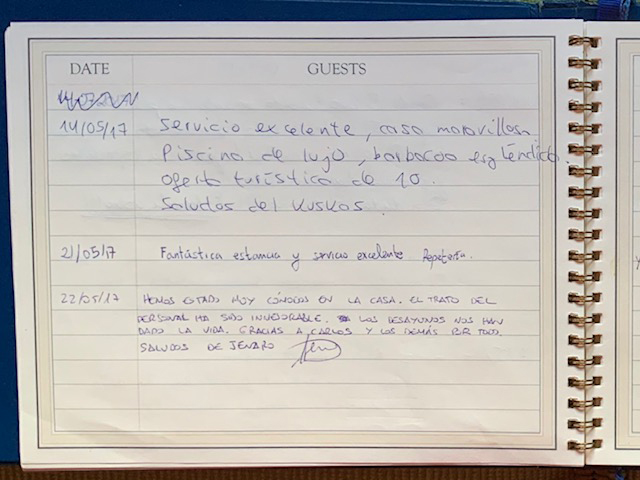 DATE GUESTS
14/05/17 Servicio excelente, casa maravillosa.
Piscina de lujo, barbacoa espléndida.
oferta turística de 10.
Saludos del Kuskas.
21/05/17 Fantástica estancia y servicio excelente Repetería.
22/05/17 HEMOS ESTADO MUY CÓMODOS EN LA CASA. EL TRATO DEL
PERSONAL HA SIDO INMEJORABLE. LOS DESAYUNOS NOS HAN
DADO LA VIDA. GRACIAS A CARLOS Y LOS DEMÁS POR TODO.
SALUDOS DE JENARO